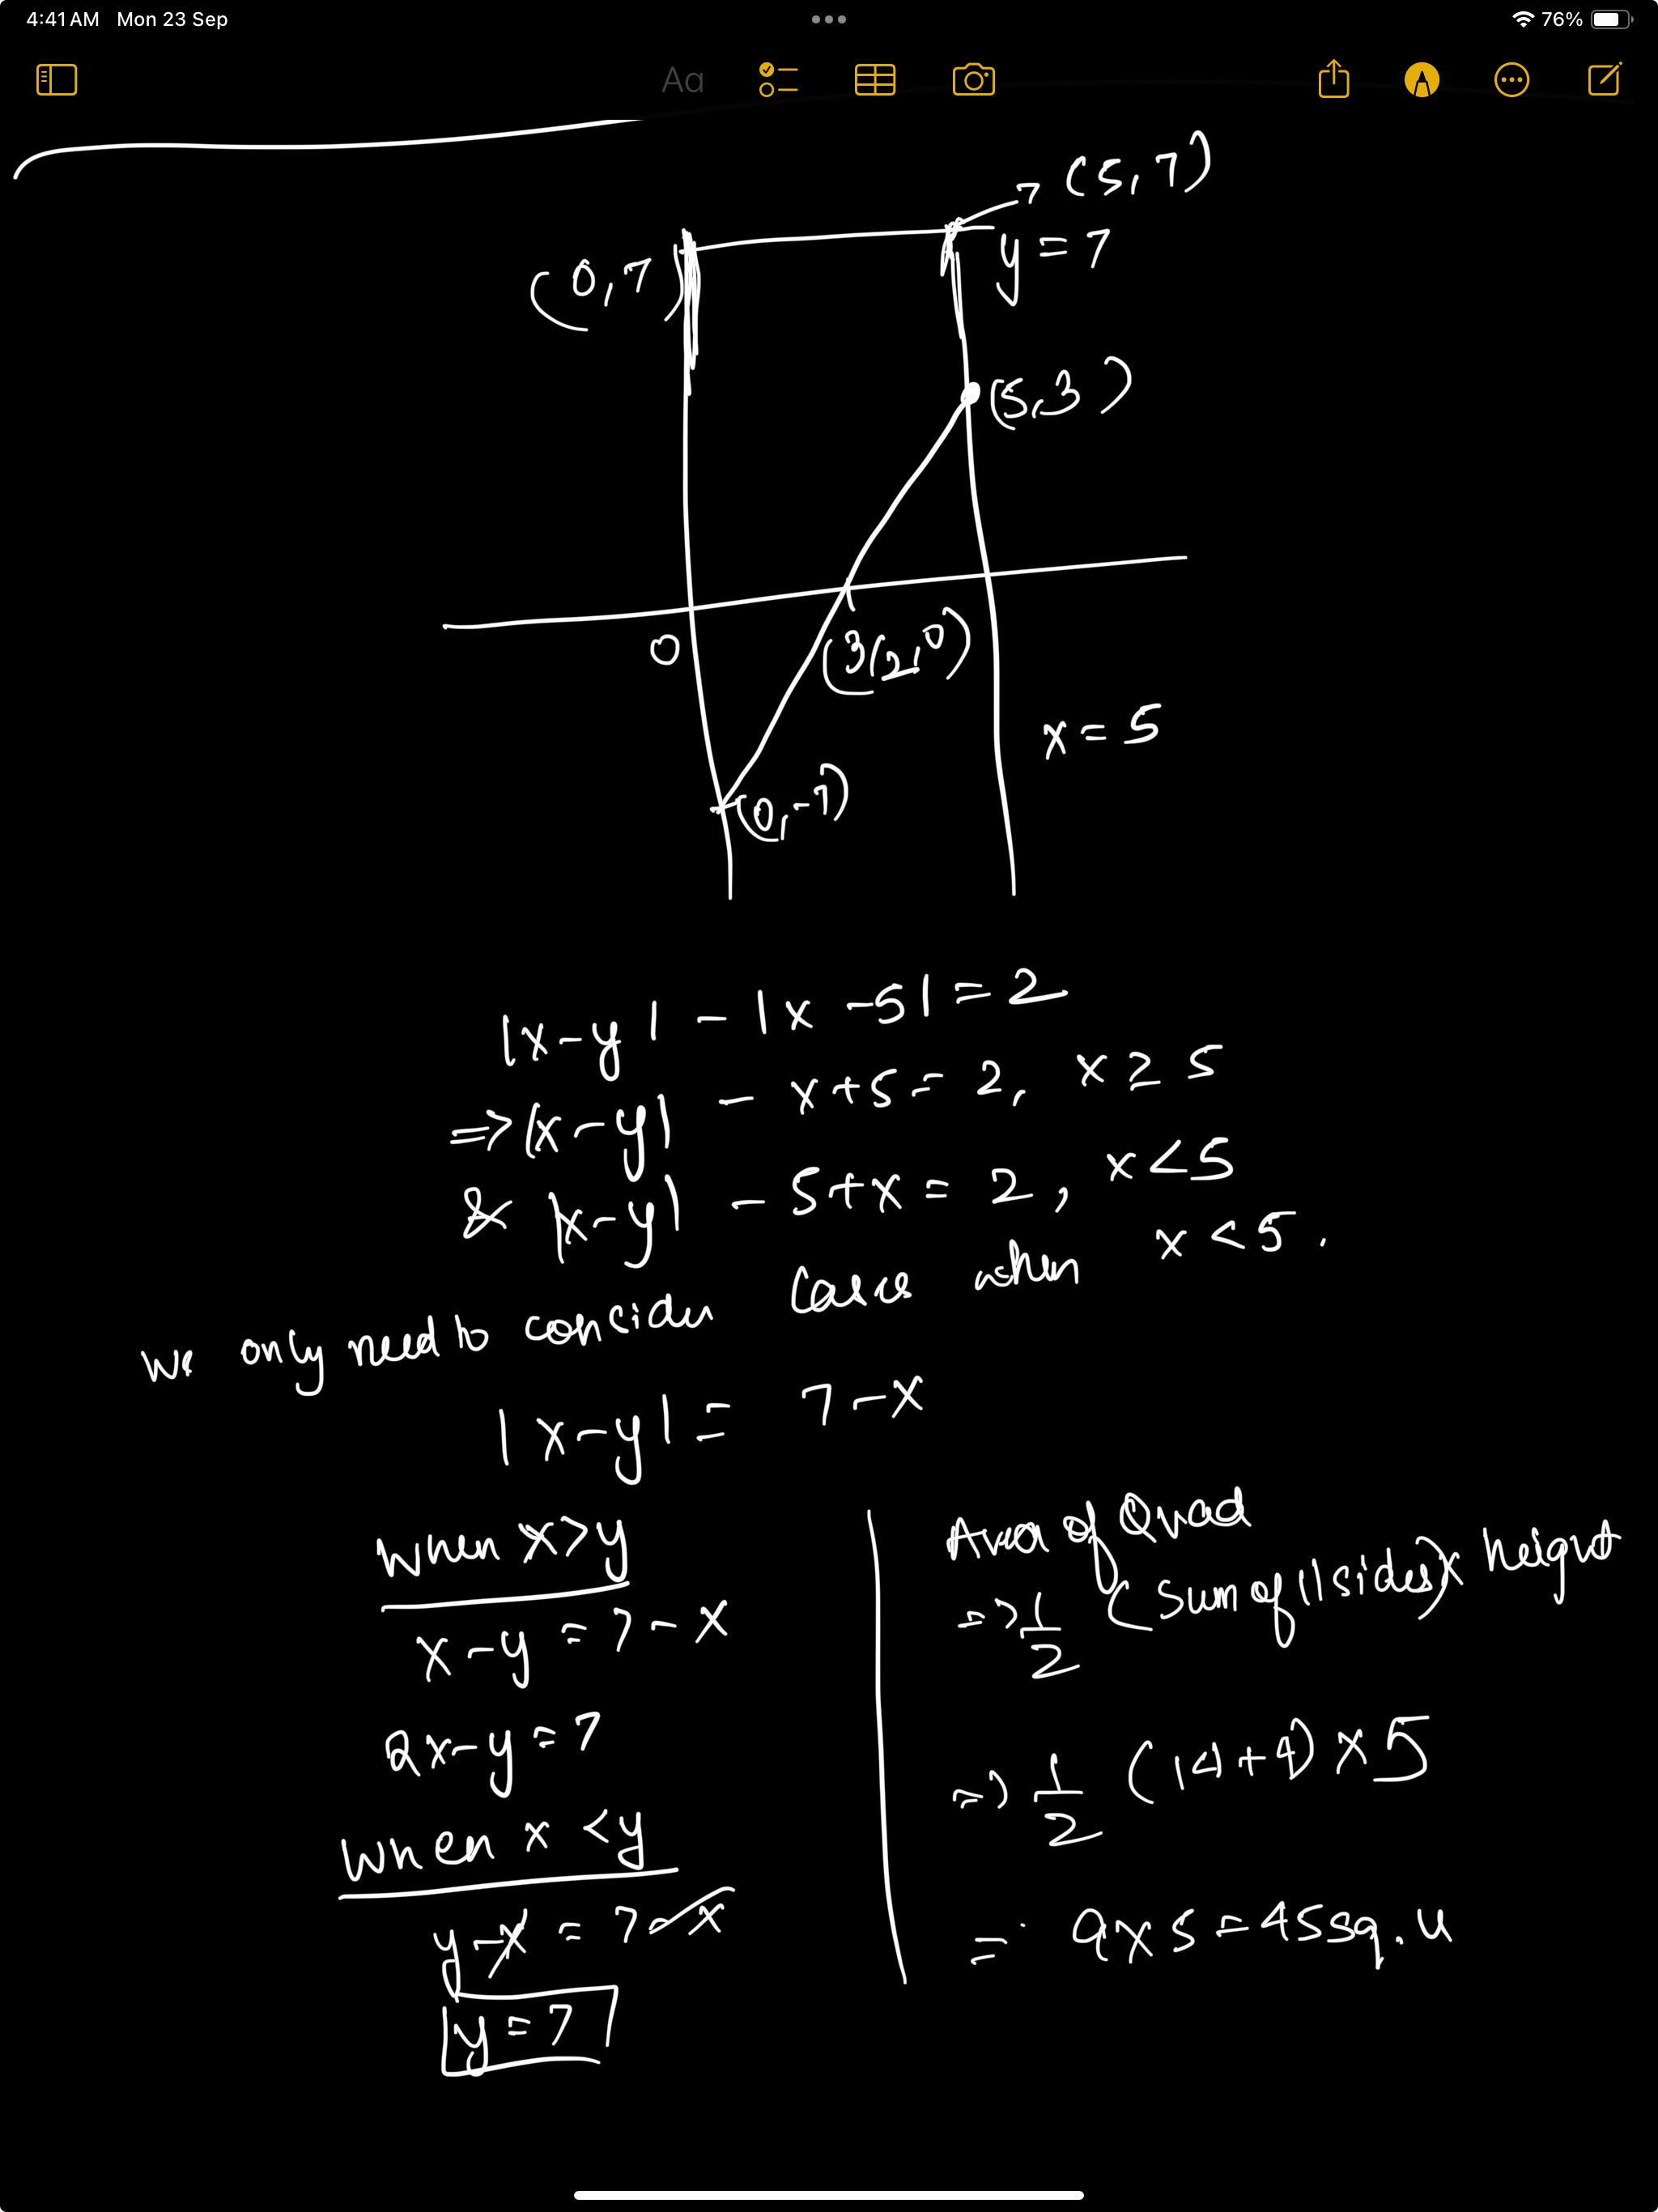 4:41 AM Mon 23 Sep
76%
Aa
(5,7)
y = 7
(0,7)
(5,3)
0
(3/2,0)
x = 5
(0,-7)
|x-y| - |x-5| = 2
=> |x-y| - x+5 = 2, x ≥ 5
& |x-y| - 5+x = 2, x<5
we only need to consider cases when x < 5.
|x-y| = 7-x
when x>y
x-y = 7-x
2x-y = 7
when x < y
y-x = 7-x
y = 7
Area of Quad
=> 1/2 (sum of || sides) x height
=> 1/2 (14+4) x 5
= 9x5 = 45 sq.u